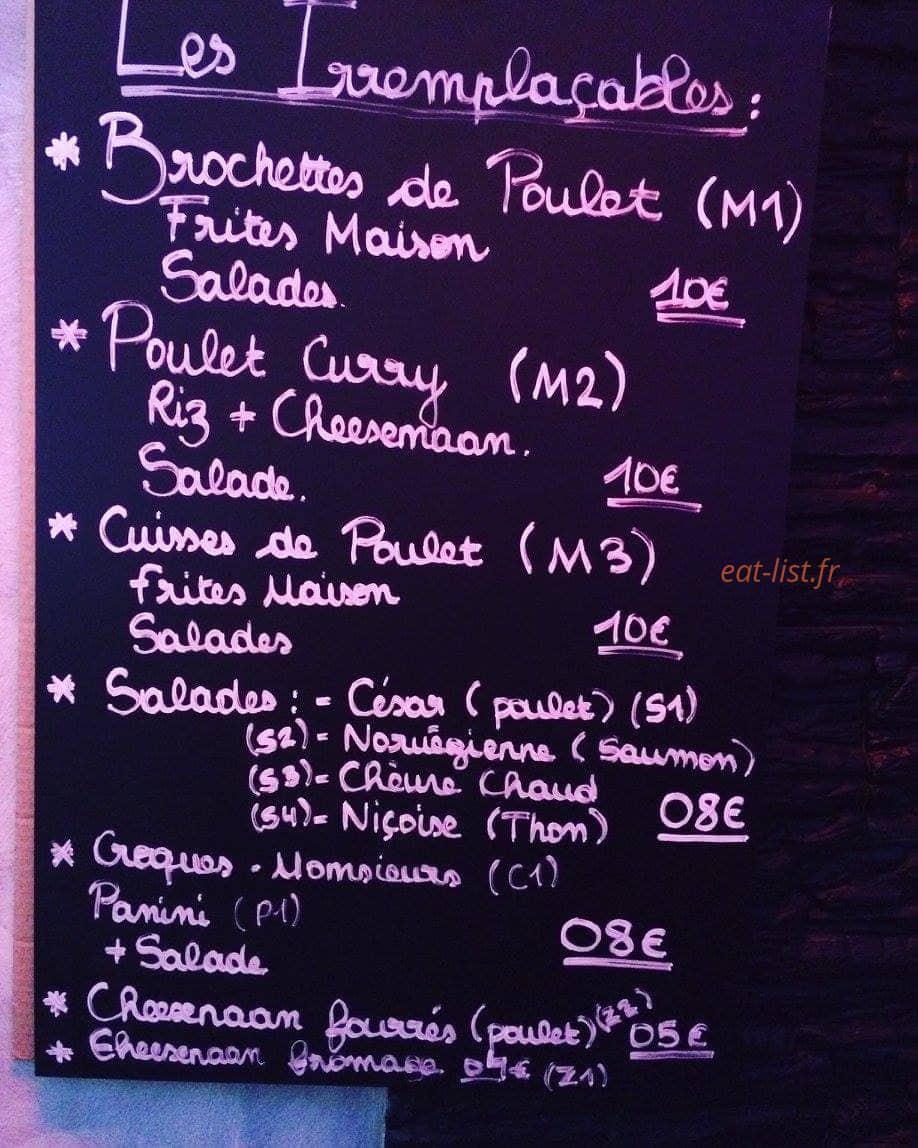 Les Irremplaçables :
* Brochettes de Poulet (M1)
Frites Maison
Salades. 10€
* Poulet Curry (M2)
Riz + Cheesenaan.
Salade. 10€
* Cuisses de Poulet (M3)
frites Maison
Salades 10€
* Salades : - César (poulet) (S1)
(S2) = Norvégienne (Saumon)
(S3) = Chèvre Chaud
(S4) = Niçoise (Thon) 08€
* Croques - Monsieurs (C1)
Panini (P1)
+ Salade 08€
* Cheesenaan fourrés (poulet) (Z2) 05€
* Cheesenaan fromage 04€ (Z1)
eat-list.fr